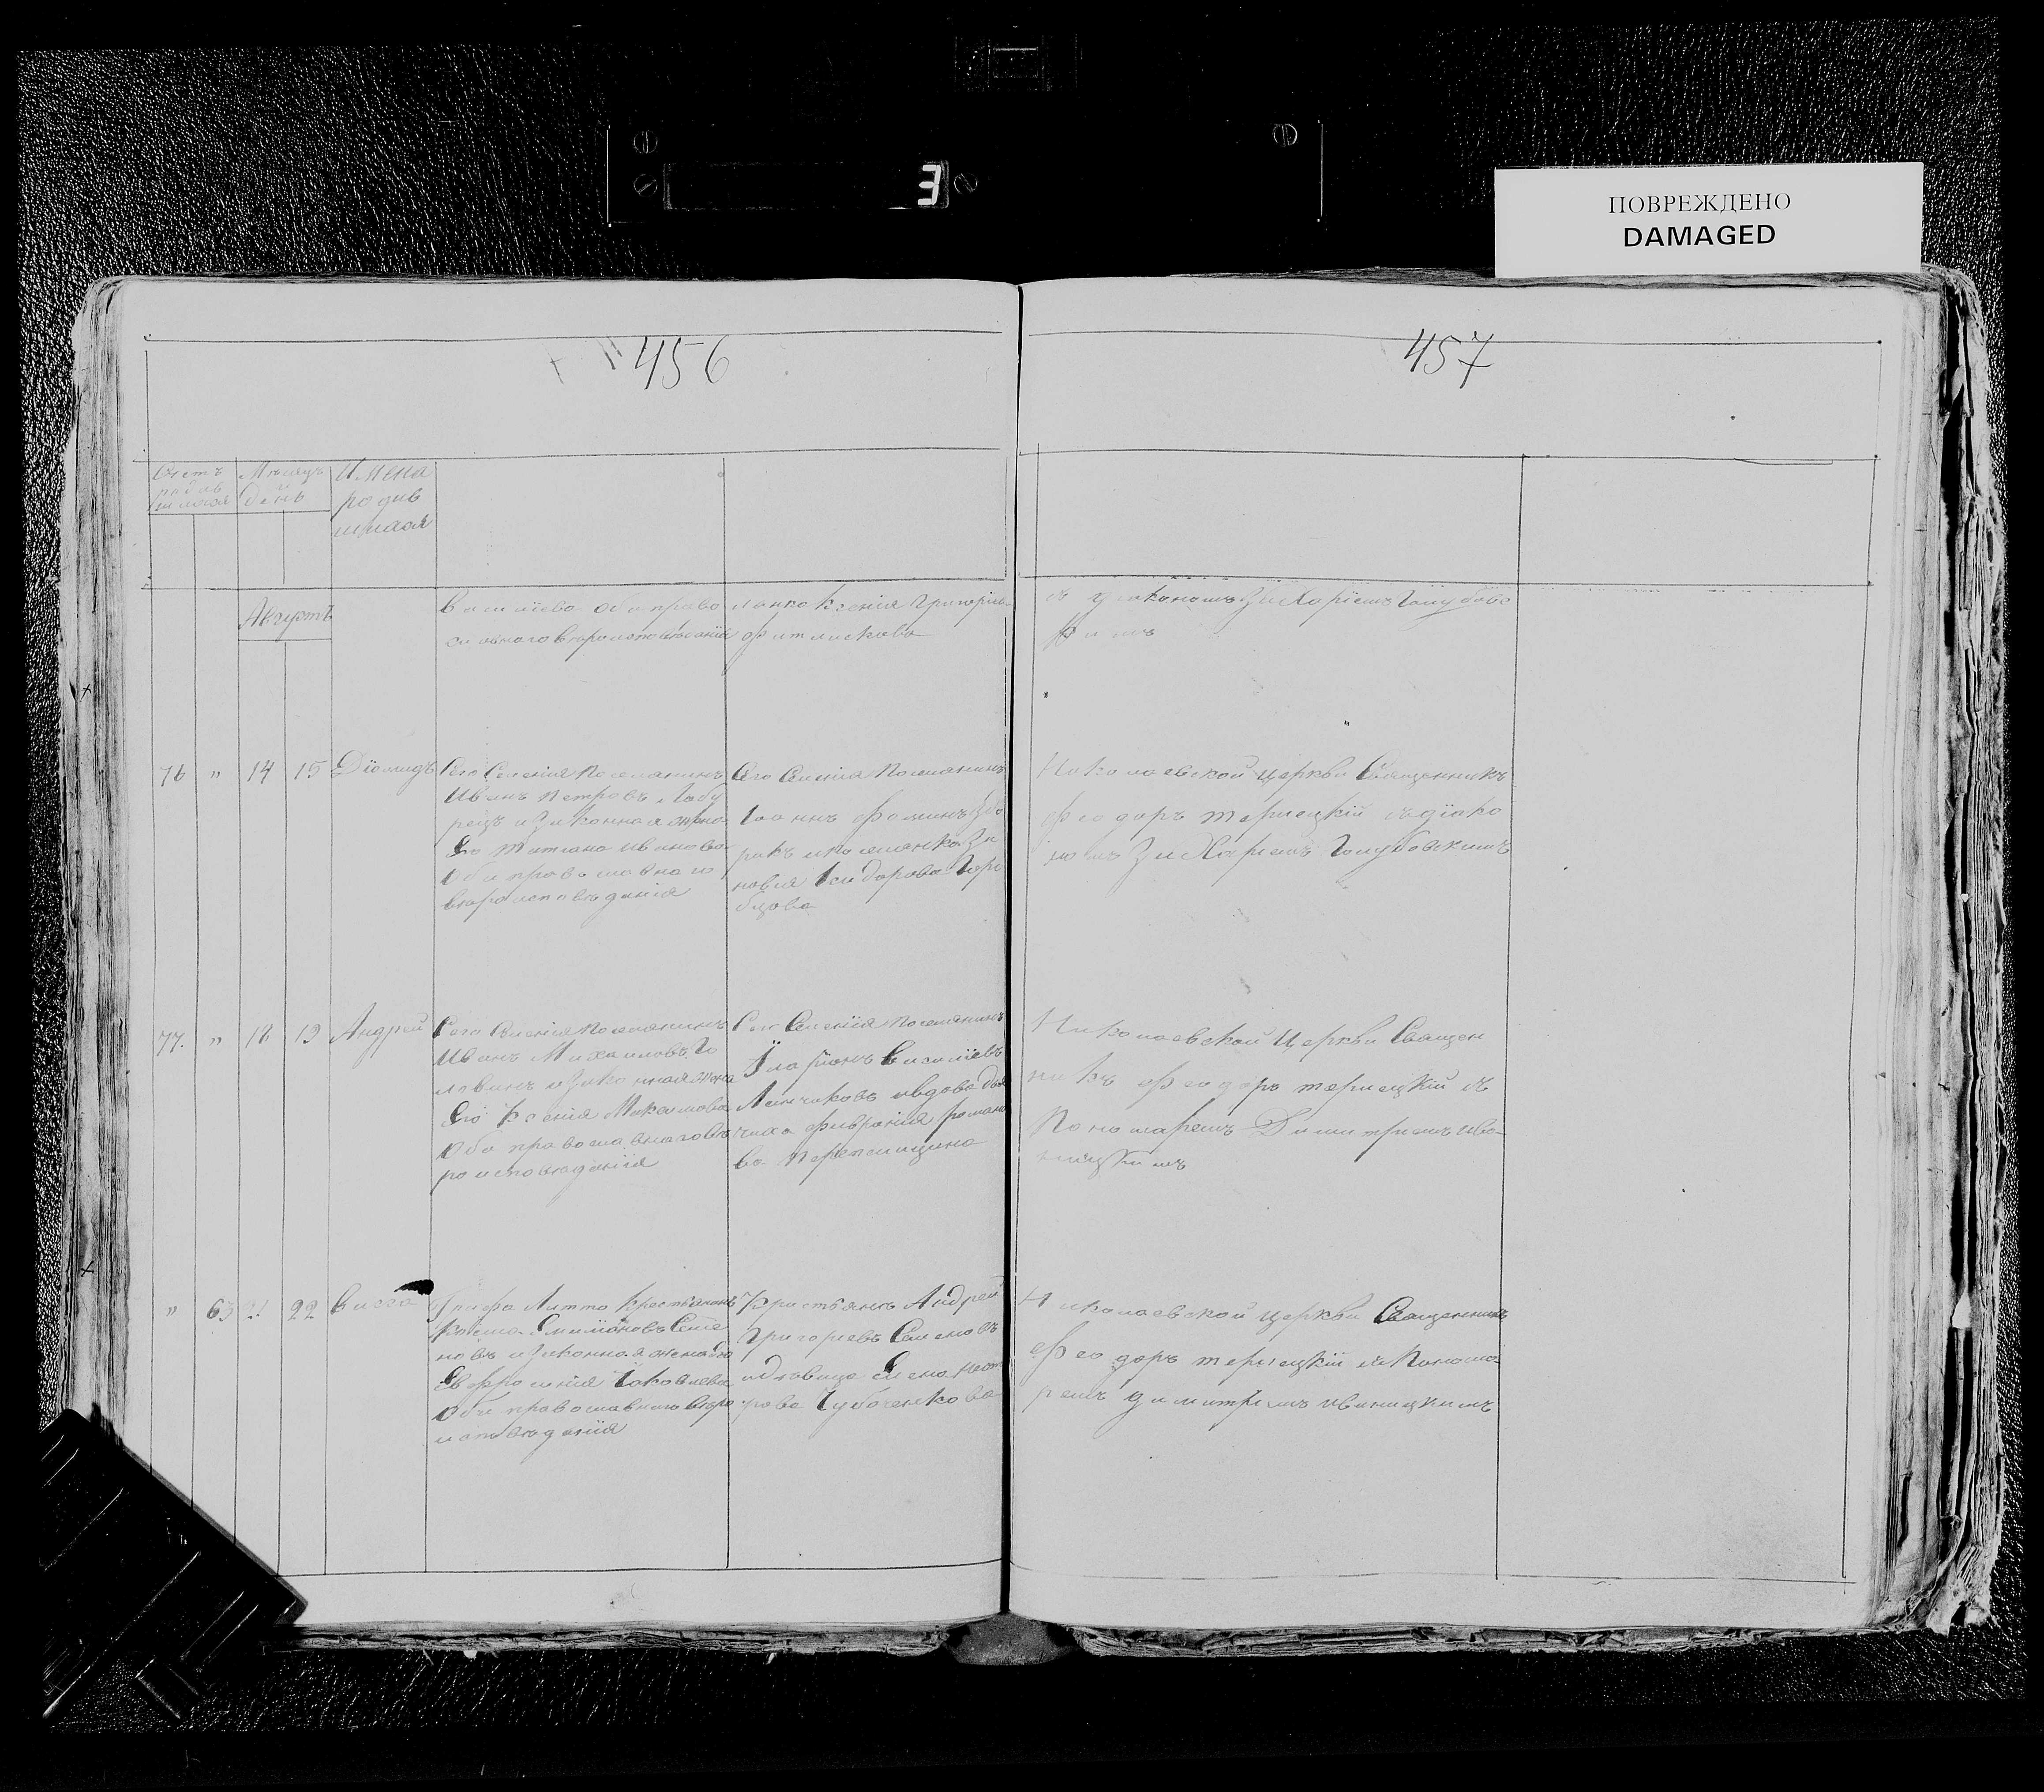 3
ПОВРЕЖДЕНО
DAMAGED
456
457
Счетъ
Мѣсяцъ
день
Имена
родив
шихся
Августъ
василіева оба право
славнаго вѣроисповѣданія
ланка Ксенія Григоріева
съ діакономъ Захаріемъ Голубовс
кимъ
76 " 14 15 Діомидъ
Сего Селенія Поселянинъ
Иванъ Петровъ
и законная жена
Его Татіана Иванова
Оба православнаго
вѣроисповѣданія
Сего Селенія Поселянинъ
Іоаннъ Фоминъ
и поселянка Зи
новія Ісидорова Горо
бцова
Николаевской церкви Священникъ
Феодоръ Терлецкій съ діако
номъ Захаріемъ Голубовскимъ
77. " 18 19 Андрей
Сего Селенія Поселянинъ
Иванъ Михаиловъ Го
ловинъ и законная жена
Его Ксенія Максимова
Оба православнаго вѣ
роисповѣданія
Сего Селенія Поселянинъ
Іларіонъ Василіевъ
и вдова
Февронія Романо
ва Перепелицина
Николаевской Церкви Священ
никъ Феодоръ Терлецкій съ
Пономаремъ Димитріемъ Ива
ницкимъ
" 63 21 22 Васса
Графа Литта Крестьянинъ
Козма Семе
новъ и законная жена Его
Евфросинія Іаковлева
Оба православнаго вѣро
исповѣданія
Крестьянинъ Андрей
Григорьевъ Семеновъ
и дѣвица Елена
Губаренкова
Николаевской церкви Священникъ
Феодоръ Терлецкій съ Понома
ремъ Димитріемъ Иваницкимъ